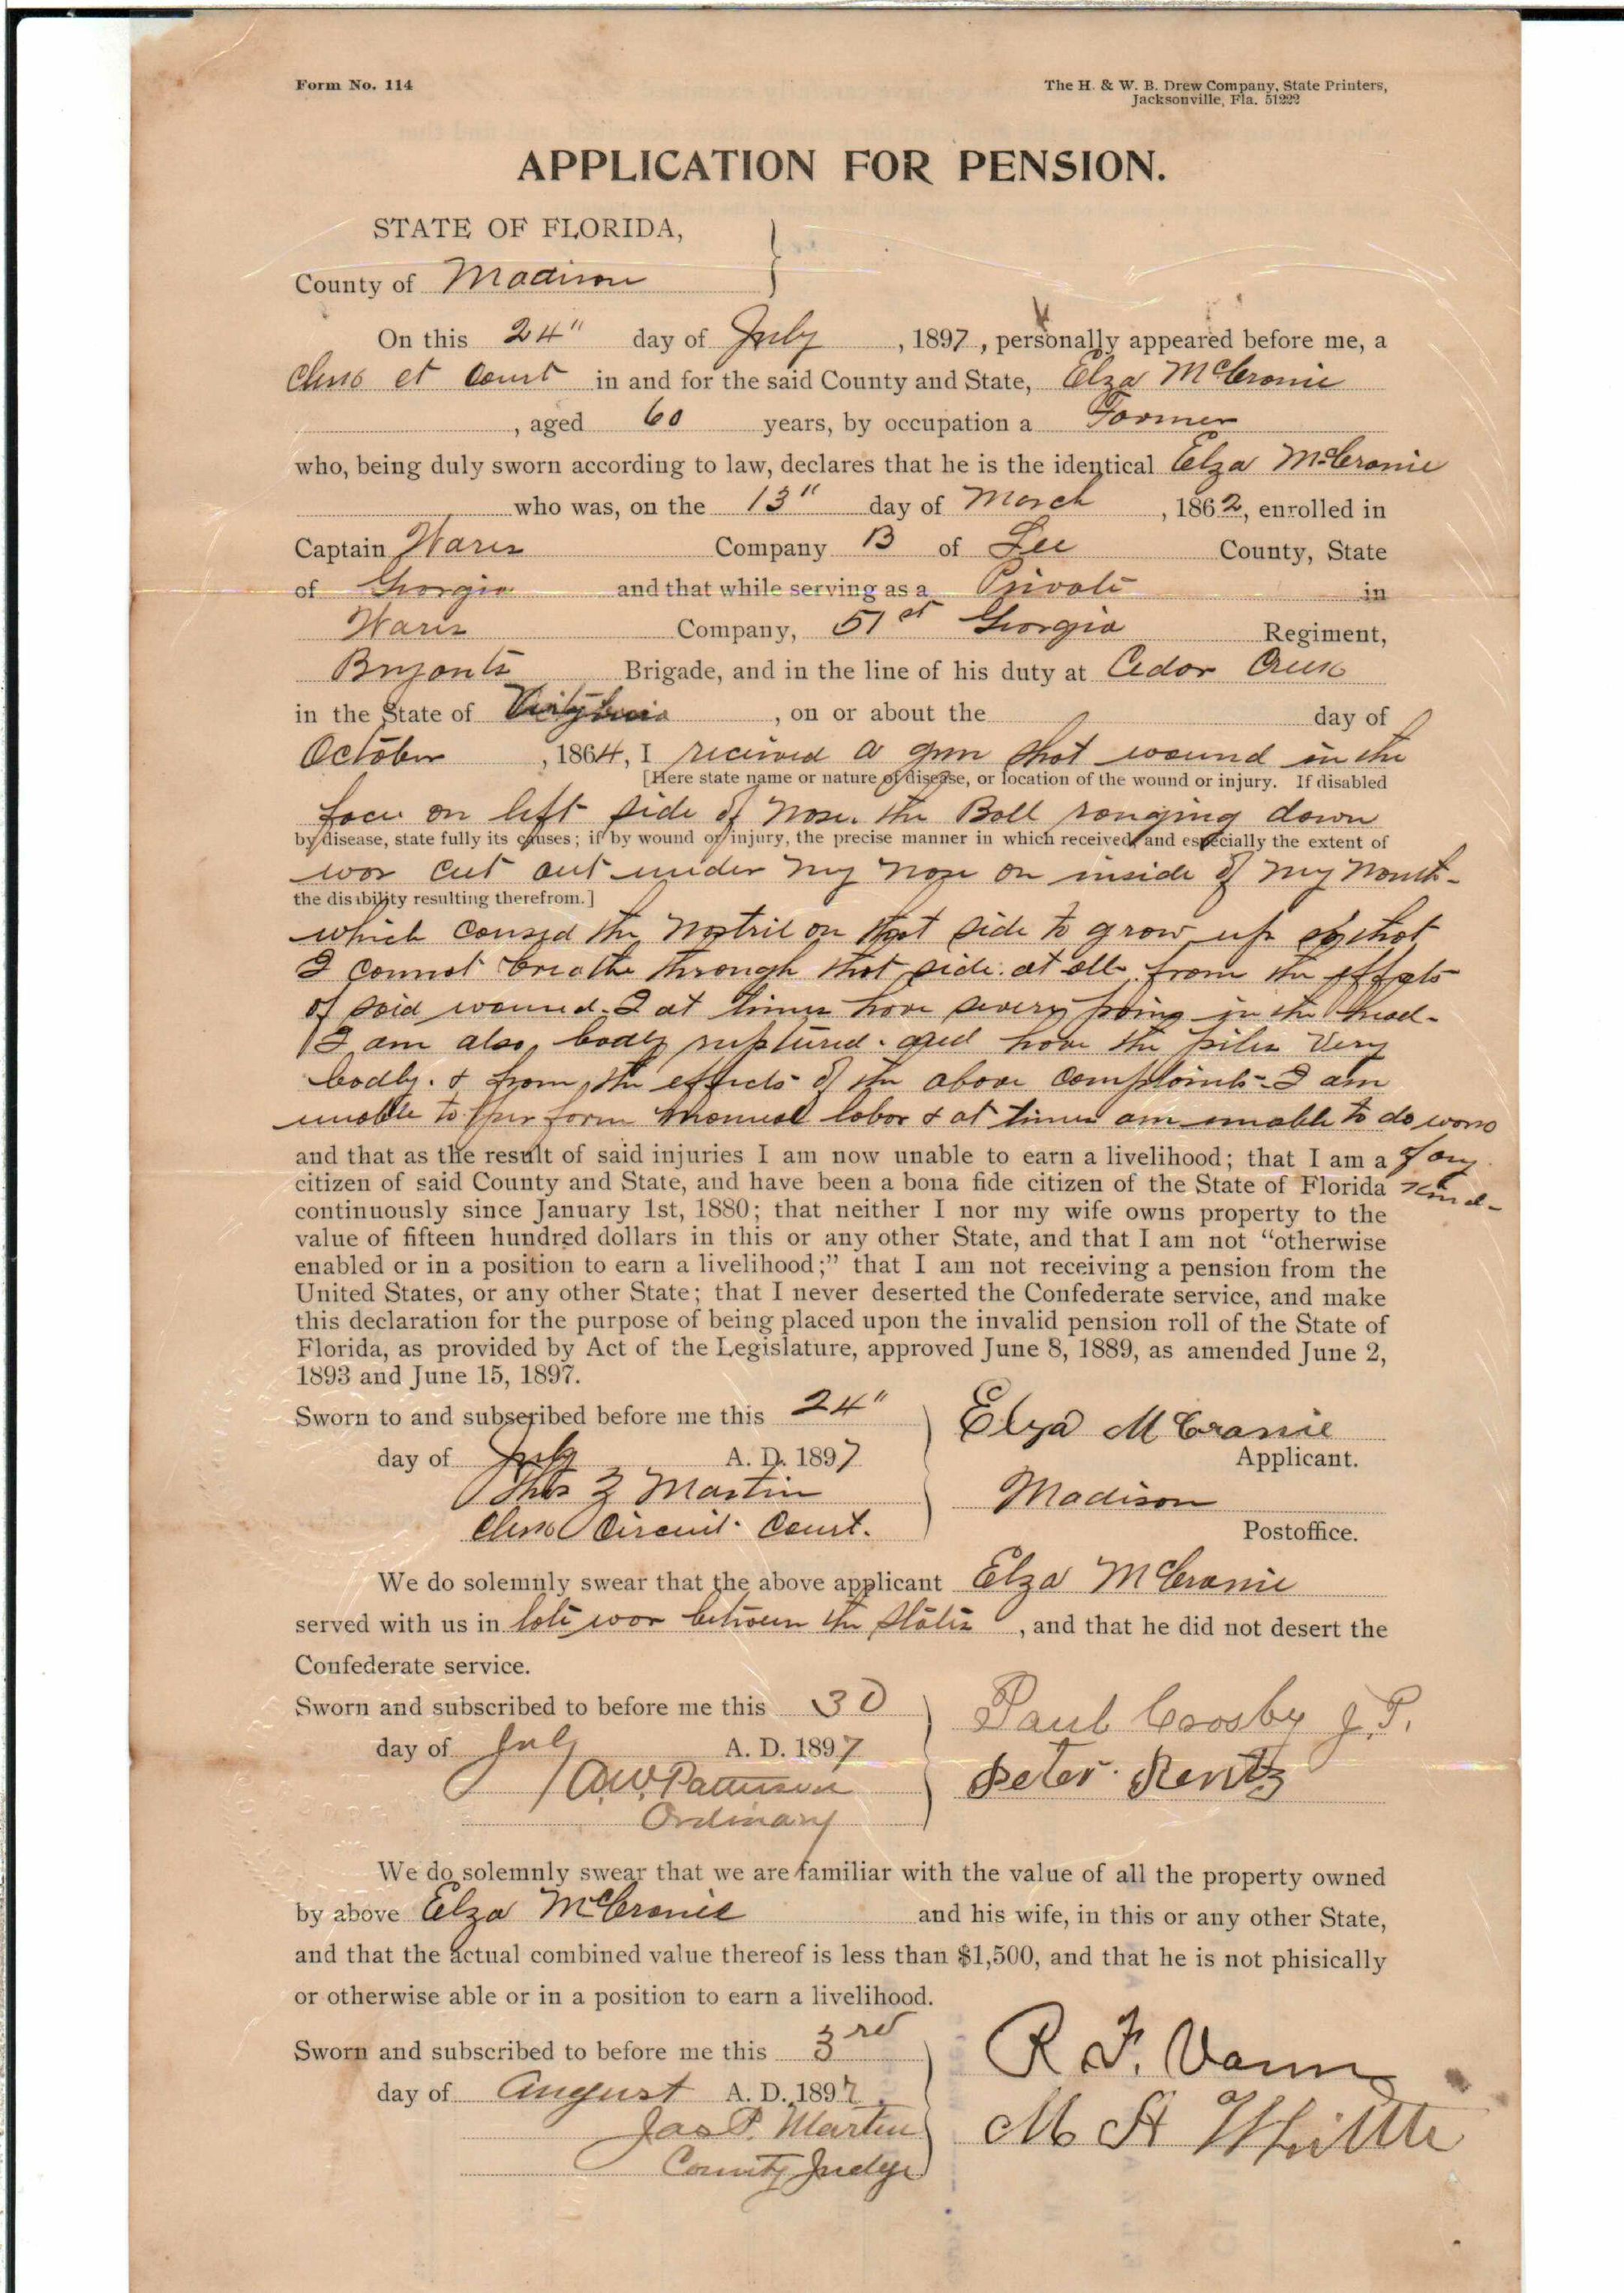 Form No. 114
The H. & W. B. Drew Company, State Printers,
Jacksonville, Fla. 51222
APPLICATION FOR PENSION.
STATE OF FLORIDA,
County of Madison
On this 24" day of July , 1897, personally appeared before me, a
Clerk Ct Court in and for the said County and State, Elza McCranie
, aged 60 years, by occupation a Farmer
who, being duly sworn according to law, declares that he is the identical Elza McCranie
who was, on the 13" day of March , 1862, enrolled in
Captain Company B of Lee County, State
of Georgia and that while serving as a Private in
Company, 51st Georgia Regiment,
Bryants Brigade, and in the line of his duty at Cedar Creek
in the State of , on or about the day of
October , 1864, I received a gun shot wound in the
[Here state name or nature of disease, or location of the wound or injury. If disabled
face on left side of nose. the Ball ranging down
by disease, state fully its causes; if by wound or injury, the precise manner in which received, and especially the extent of
was cut out under my nose on inside of my mouth-
the disibility resulting therefrom.]
which caused the nostril on that side to grow up so that
I cannot breathe through that side at all. from the effects
of said wound. I at times have severe pains in the head-
I am also badly ruptured. and have the piles very
badly. & from the effects of the above complaints- I am
unable to perform manual labor & at times am unable to do work
and that as the result of said injuries I am now unable to earn a livelihood; that I am a of any
citizen of said County and State, and have been a bona fide citizen of the State of Florida kind-
continuously since January 1st, 1880; that neither I nor my wife owns property to the
value of fifteen hundred dollars in this or any other State, and that I am not "otherwise
enabled or in a position to earn a livelihood;" that I am not receiving a pension from the
United States, or any other State; that I never deserted the Confederate service, and make
this declaration for the purpose of being placed upon the invalid pension roll of the State of
Florida, as provided by Act of the Legislature, approved June 8, 1889, as amended June 2,
1893 and June 15, 1897.
Sworn to and subscribed before me this 24"
day of July A. D. 1897
Elza McCranie
Applicant.
Thos Z Martin
Clerk Circuit Court.
Madison
Postoffice.
We do solemnly swear that the above applicant Elza McCranie
served with us in late war between the States , and that he did not desert the
Confederate service.
Sworn and subscribed to before me this 30
day of July A. D. 1897
A.W. Patterson
Ordinary
Paul Crosby J.P.
Peter Rentz
We do solemnly swear that we are familiar with the value of all the property owned
by above Elza McCranie and his wife, in this or any other State,
and that the actual combined value thereof is less than $1,500, and that he is not phisically
or otherwise able or in a position to earn a livelihood.
Sworn and subscribed to before me this 3rd
day of August A. D. 1897
Jas P. Martin
County Judge
R. F. Vann
M A Whittle